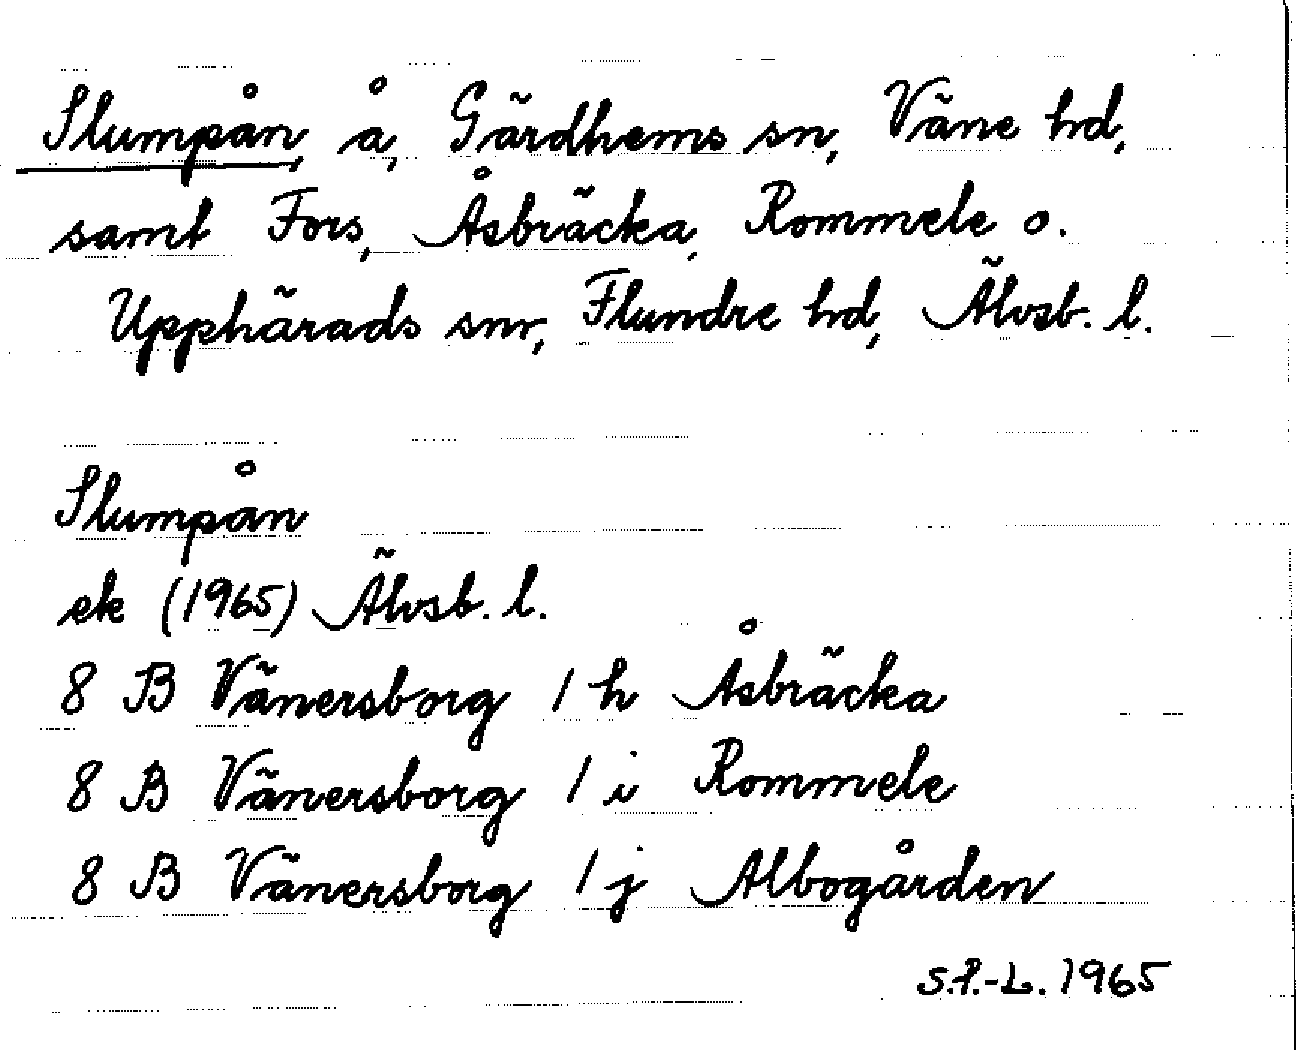 Slumpån, å, Gärdhems sn, Väne hd,
samt Fors, Åsbräcka, Rommele o.
Upphärads snr, Flundre hd, Älvsb. l.
Slumpån
ek (1965) Älvsb. l.
8 B Vänersborg 1 h Åsbräcka
8 B Vänersborg 1 i Rommele
8 B Vänersborg 1 j Albogården
S.P.-L. 1965